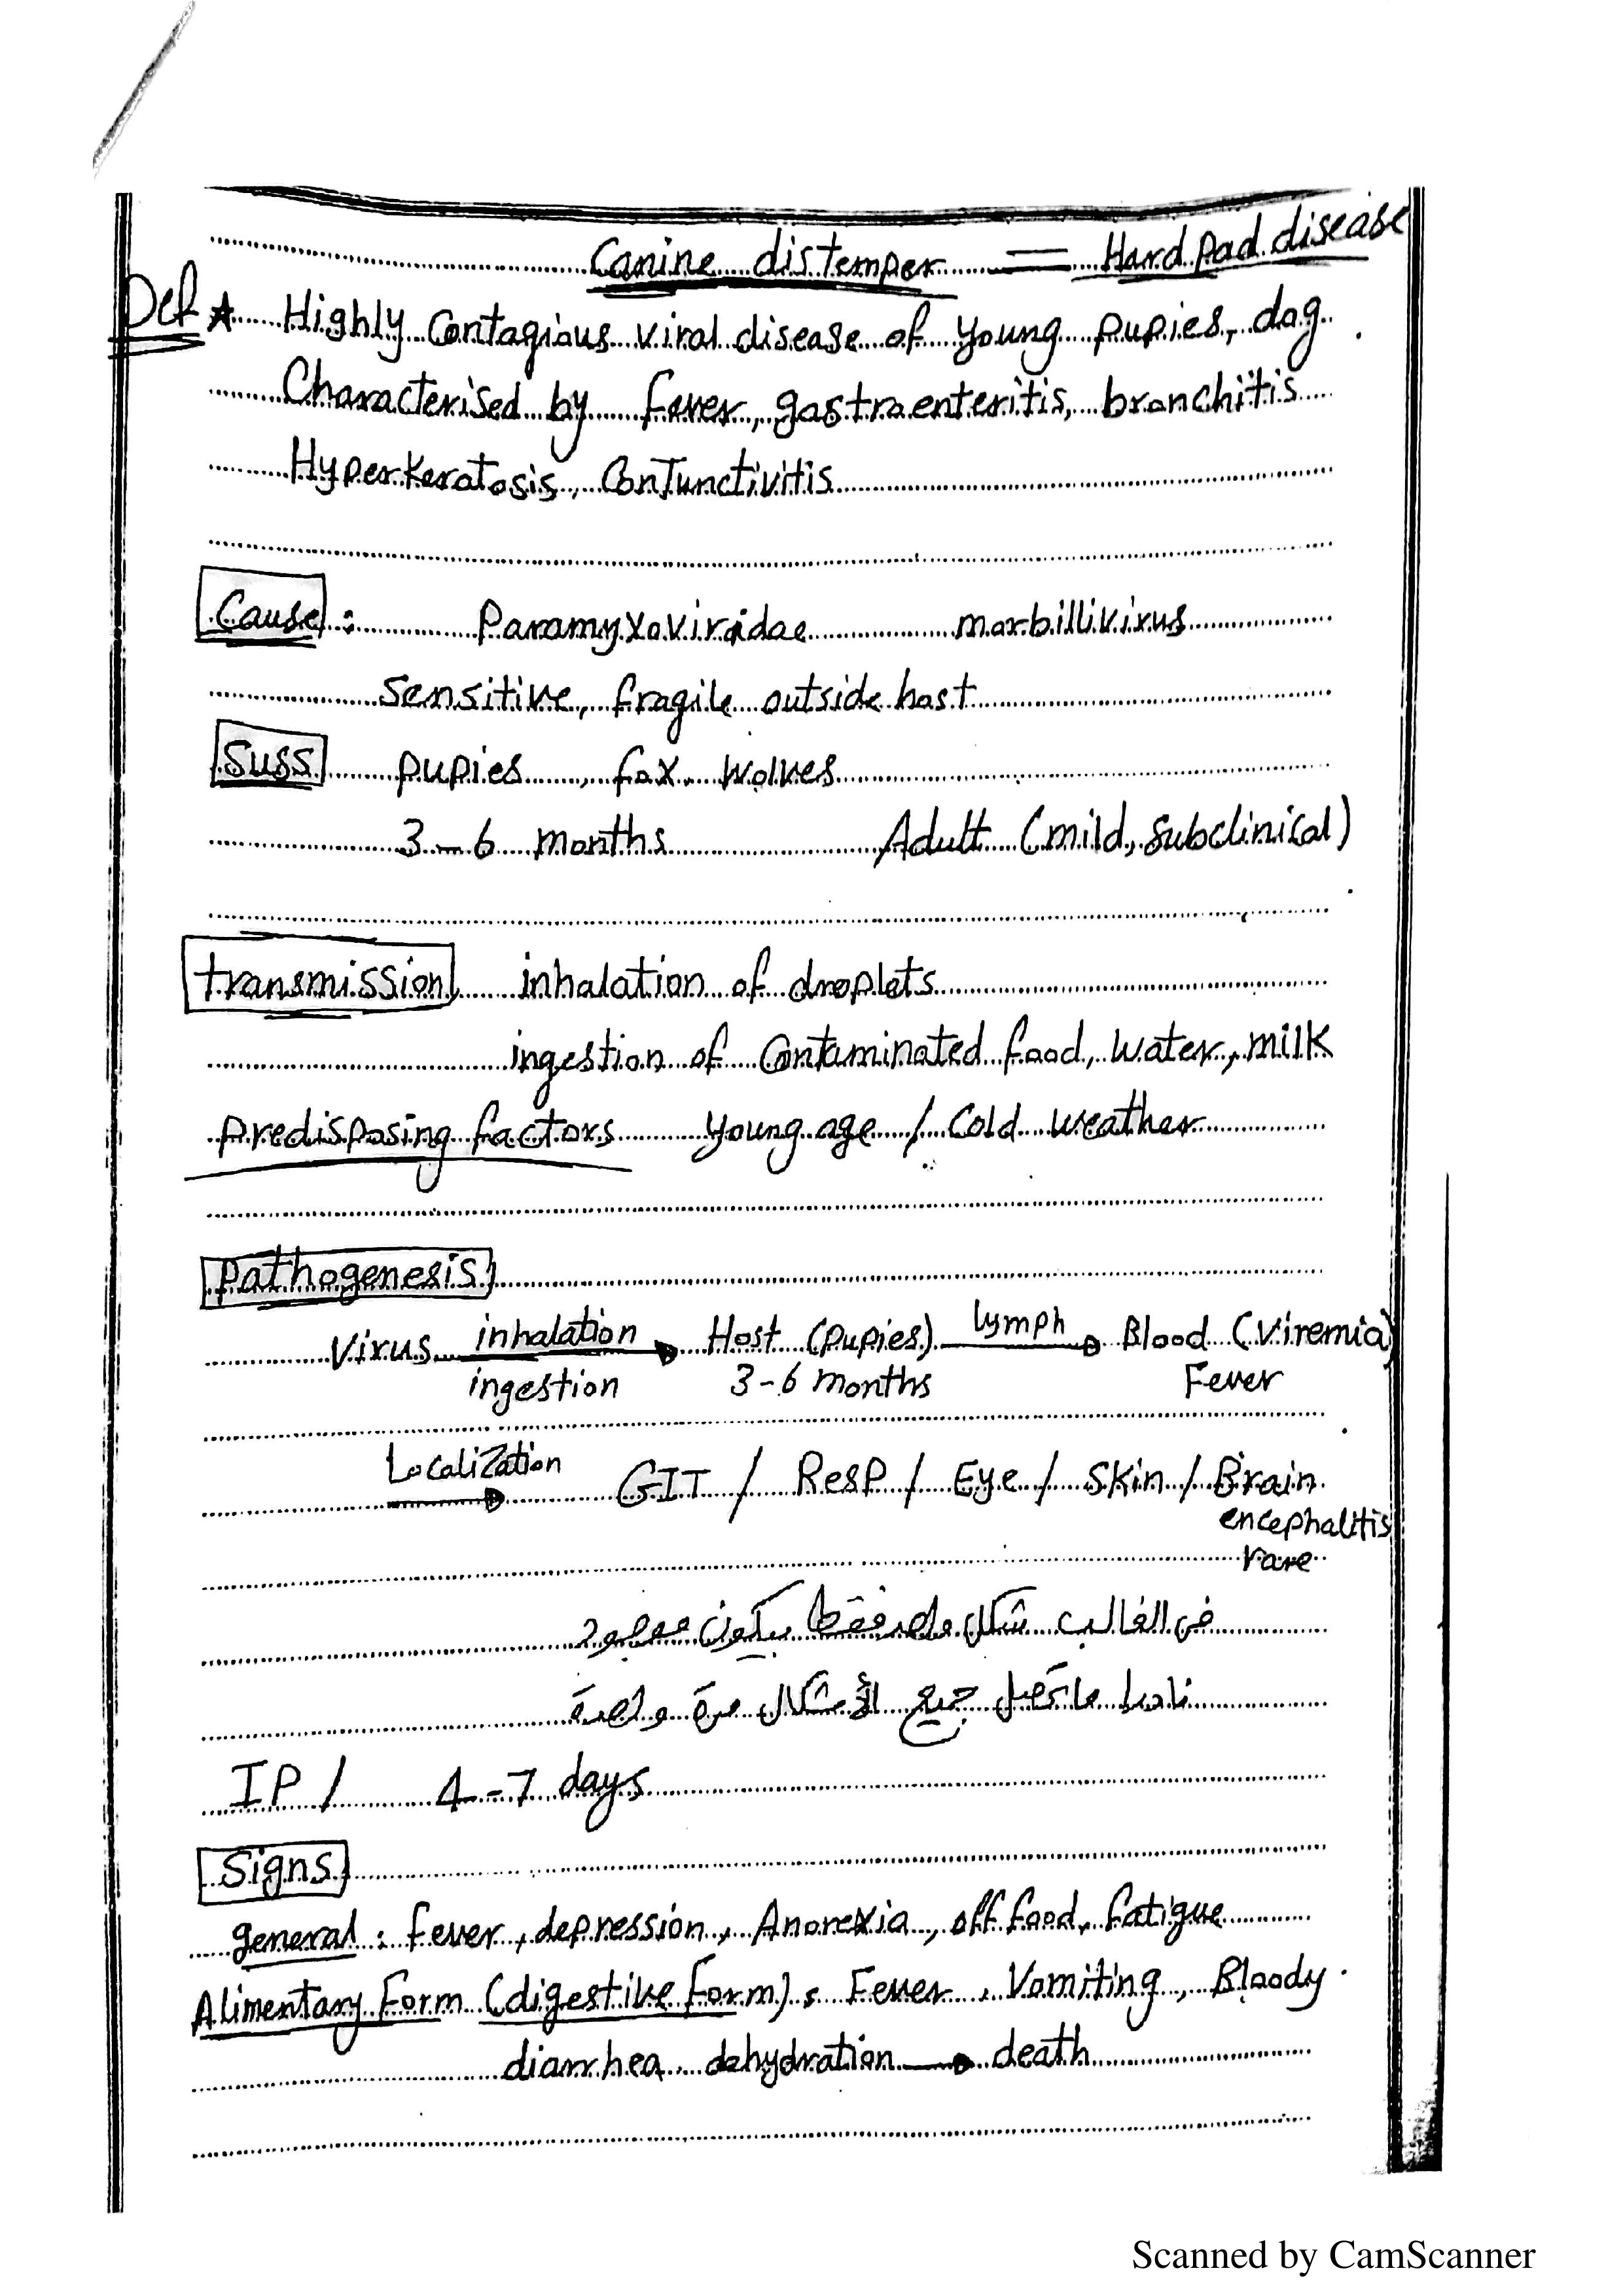 Canine distemper = Hard pad disease
Def * Highly Contagious viral disease of young pupies, dog
Characterised by fever, gastroenteritis, bronchitis
Hyperkeratosis, Conjunctivitis
Cause : Paramyxoviridae morbillivirus
Sensitive, fragile outside host
Suss pupies, fox wolves
3-6 months Adult (mild, subclinical)
transmission inhalation of droplets
ingestion of Contaminated food, water, milk
predisposing factors young age / Cold weather
Pathogenesis
Virus inhalation → Host (pupies) lymph → Blood (Viremia)
ingestion 3-6 months Fever
Localization → GIT / Resp / Eye / Skin / Brain
encephalitis
rare
في الغالب شكل واحد فقط بيكون موجود
نادرا ما تحصل جميع الأشكال مرة واحدة
IP / 4-7 days
Signs
general : fever, depression, Anorexia, off food, fatigue
Alimentary Form (digestive form) : Fever, Vomiting, Bloody
diarrhea dehydration → death
Scanned by CamScanner